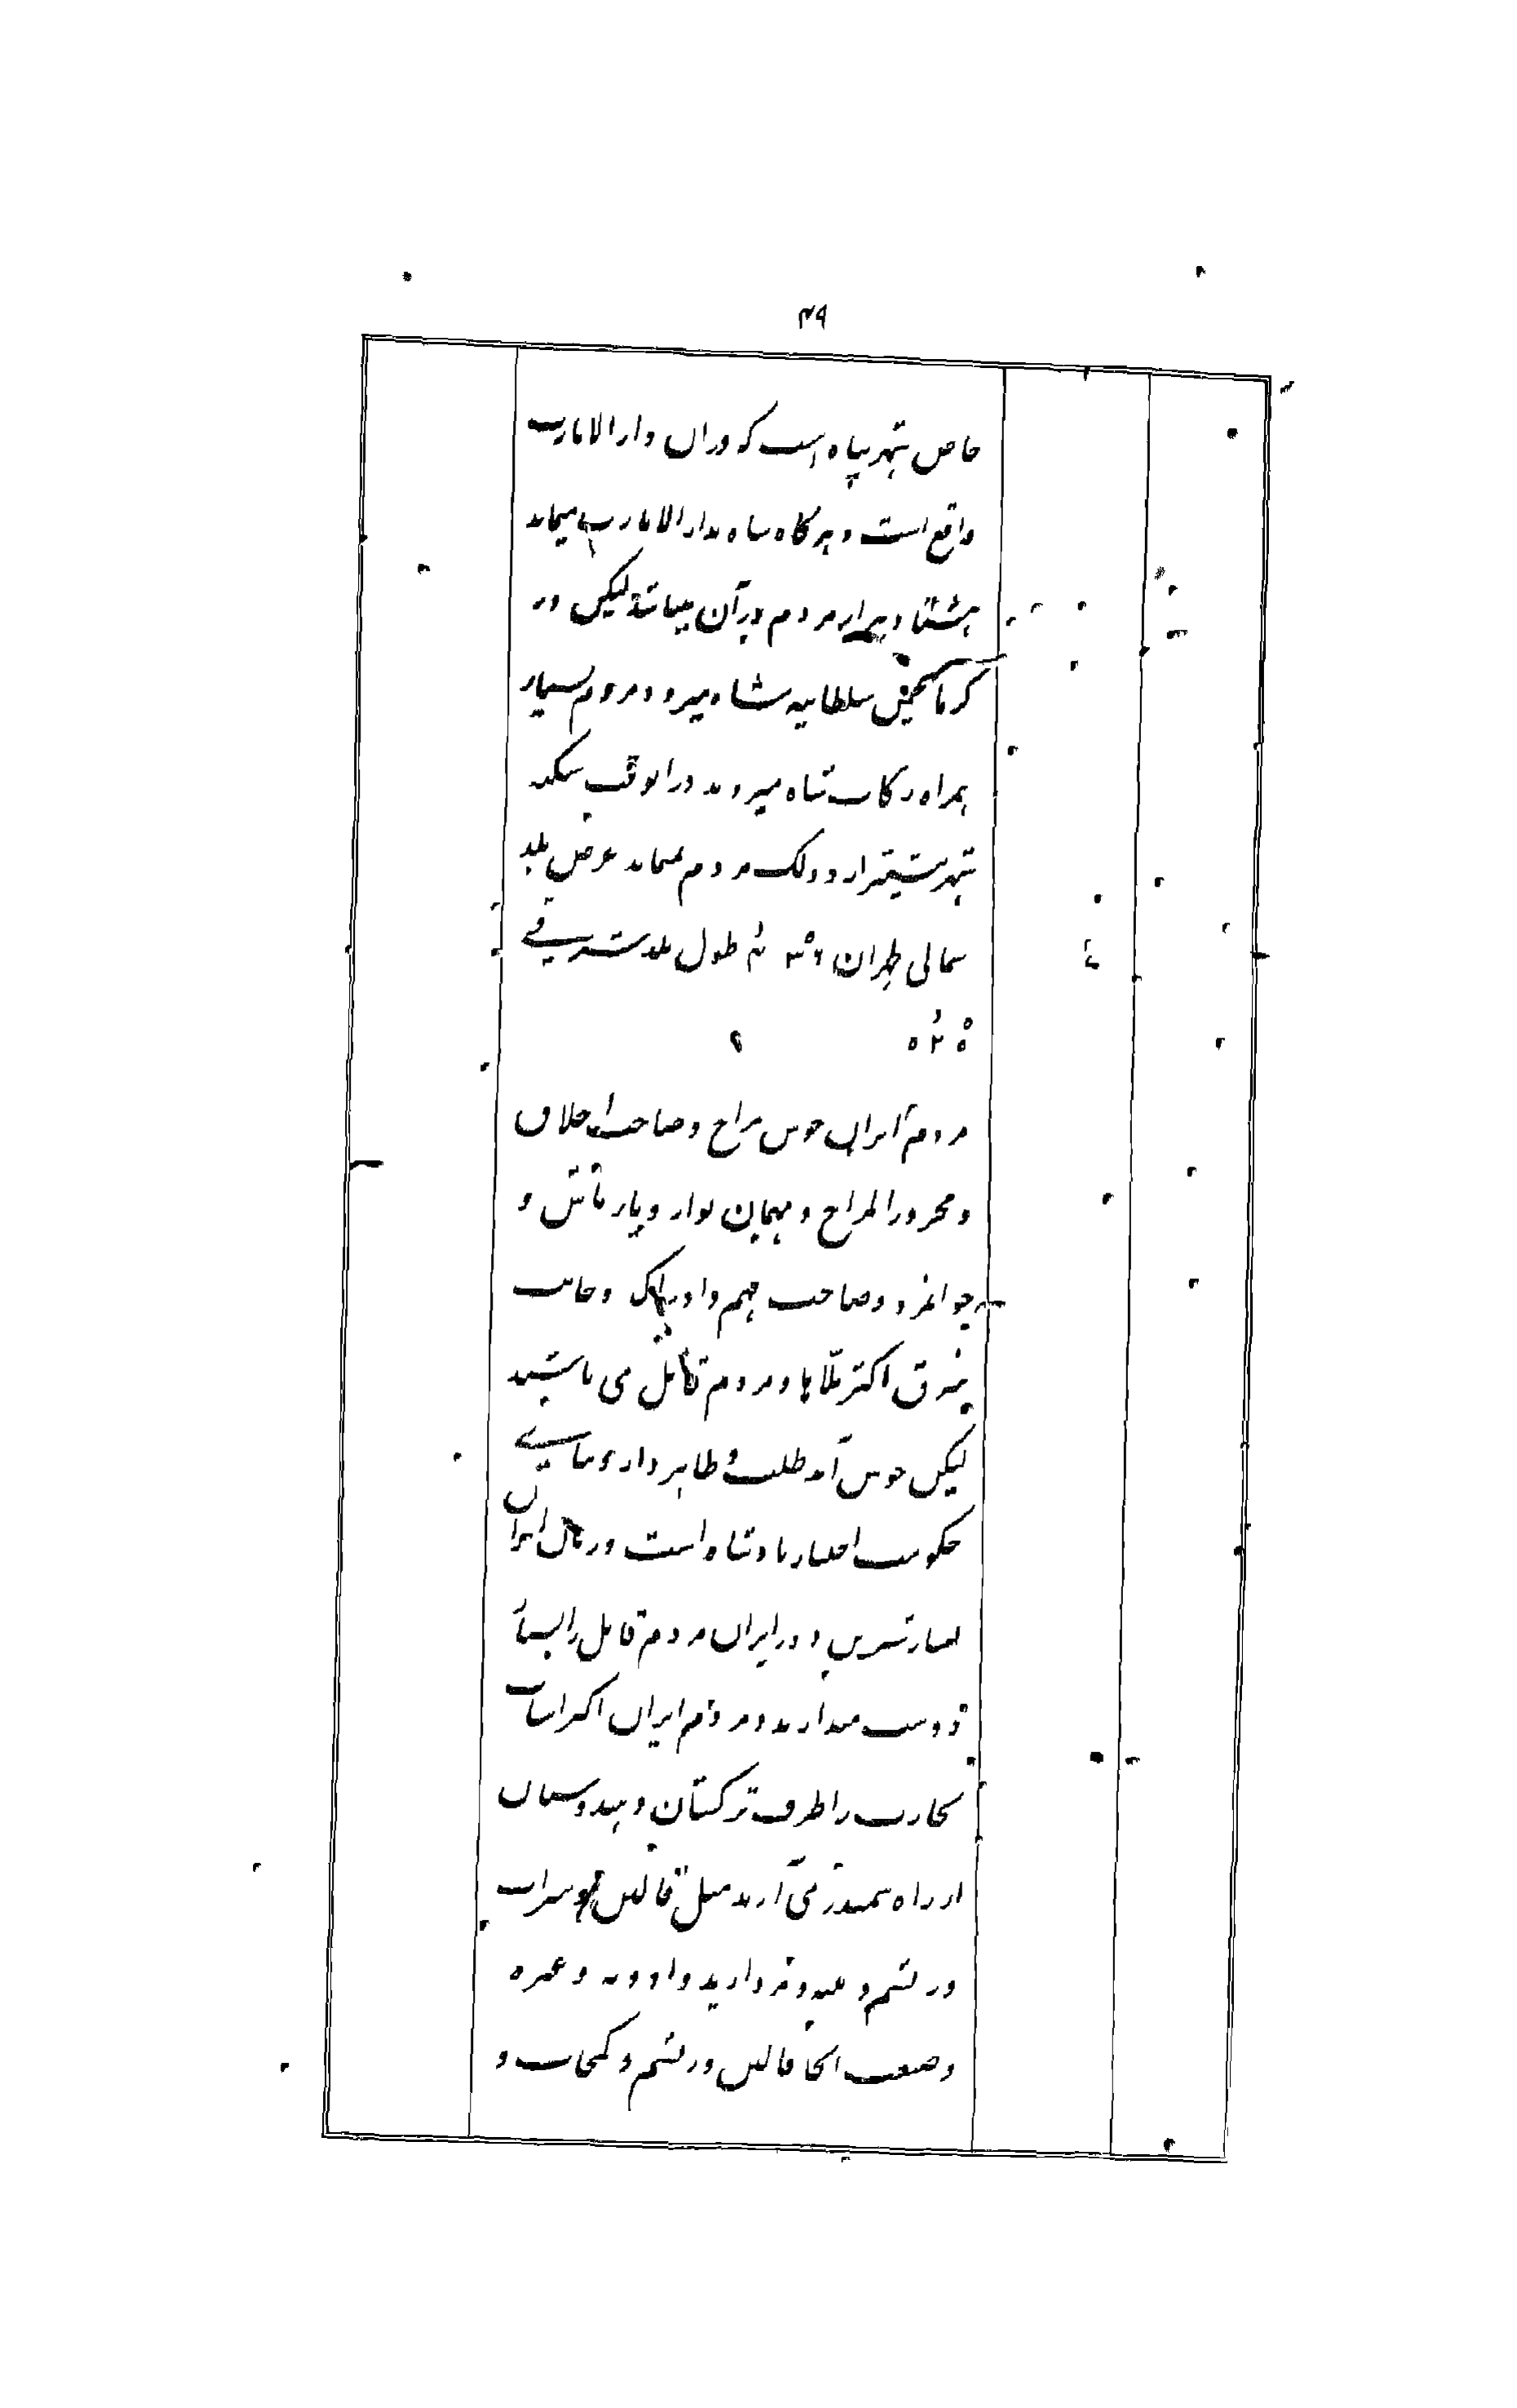 ۴۹
خاص شهر پناه است که دران دار الامارت
واقع است و هرگاه شاه بدار الامارت میماند
هشتاد هزار مردم درآن میمانند لیکن در
گرما بچمن سلطانیه شاه میرود و مردم بسیار
همراه رکاب شاه میروند در انوقت
شهر شیعتر از دو لک مردم نمیماند عرض بلد
شمالی طهران ۳۵ طول بلد شرقی
۵۲ ۵
مردم ایران خوش مزاج و صاحب اخلاق
و محرور المزاج و مهمان نواز و یار باش و
جوانمرد و صاحب فهم و ادراک و جانب
شرق اکثر ملا ها و مردم قابل می باشند
لیکن خوش آمد طلب و ظاهردار و بنابے
حکومت اختیار پادشاه است و زبان ایران
بسیار شیرین و در ایران مردم قابل را بسیار
دوست میدارند و مردم ایران اکثر اسباب
تجارت را طرف ترکستان و هندوستان
از راه سمندر می آرند مثل قالین و شراب
و ریشم و میوه و مروارید و ادویه و غیره
و صنعت انجا قالین و ریشم و کمخاب و